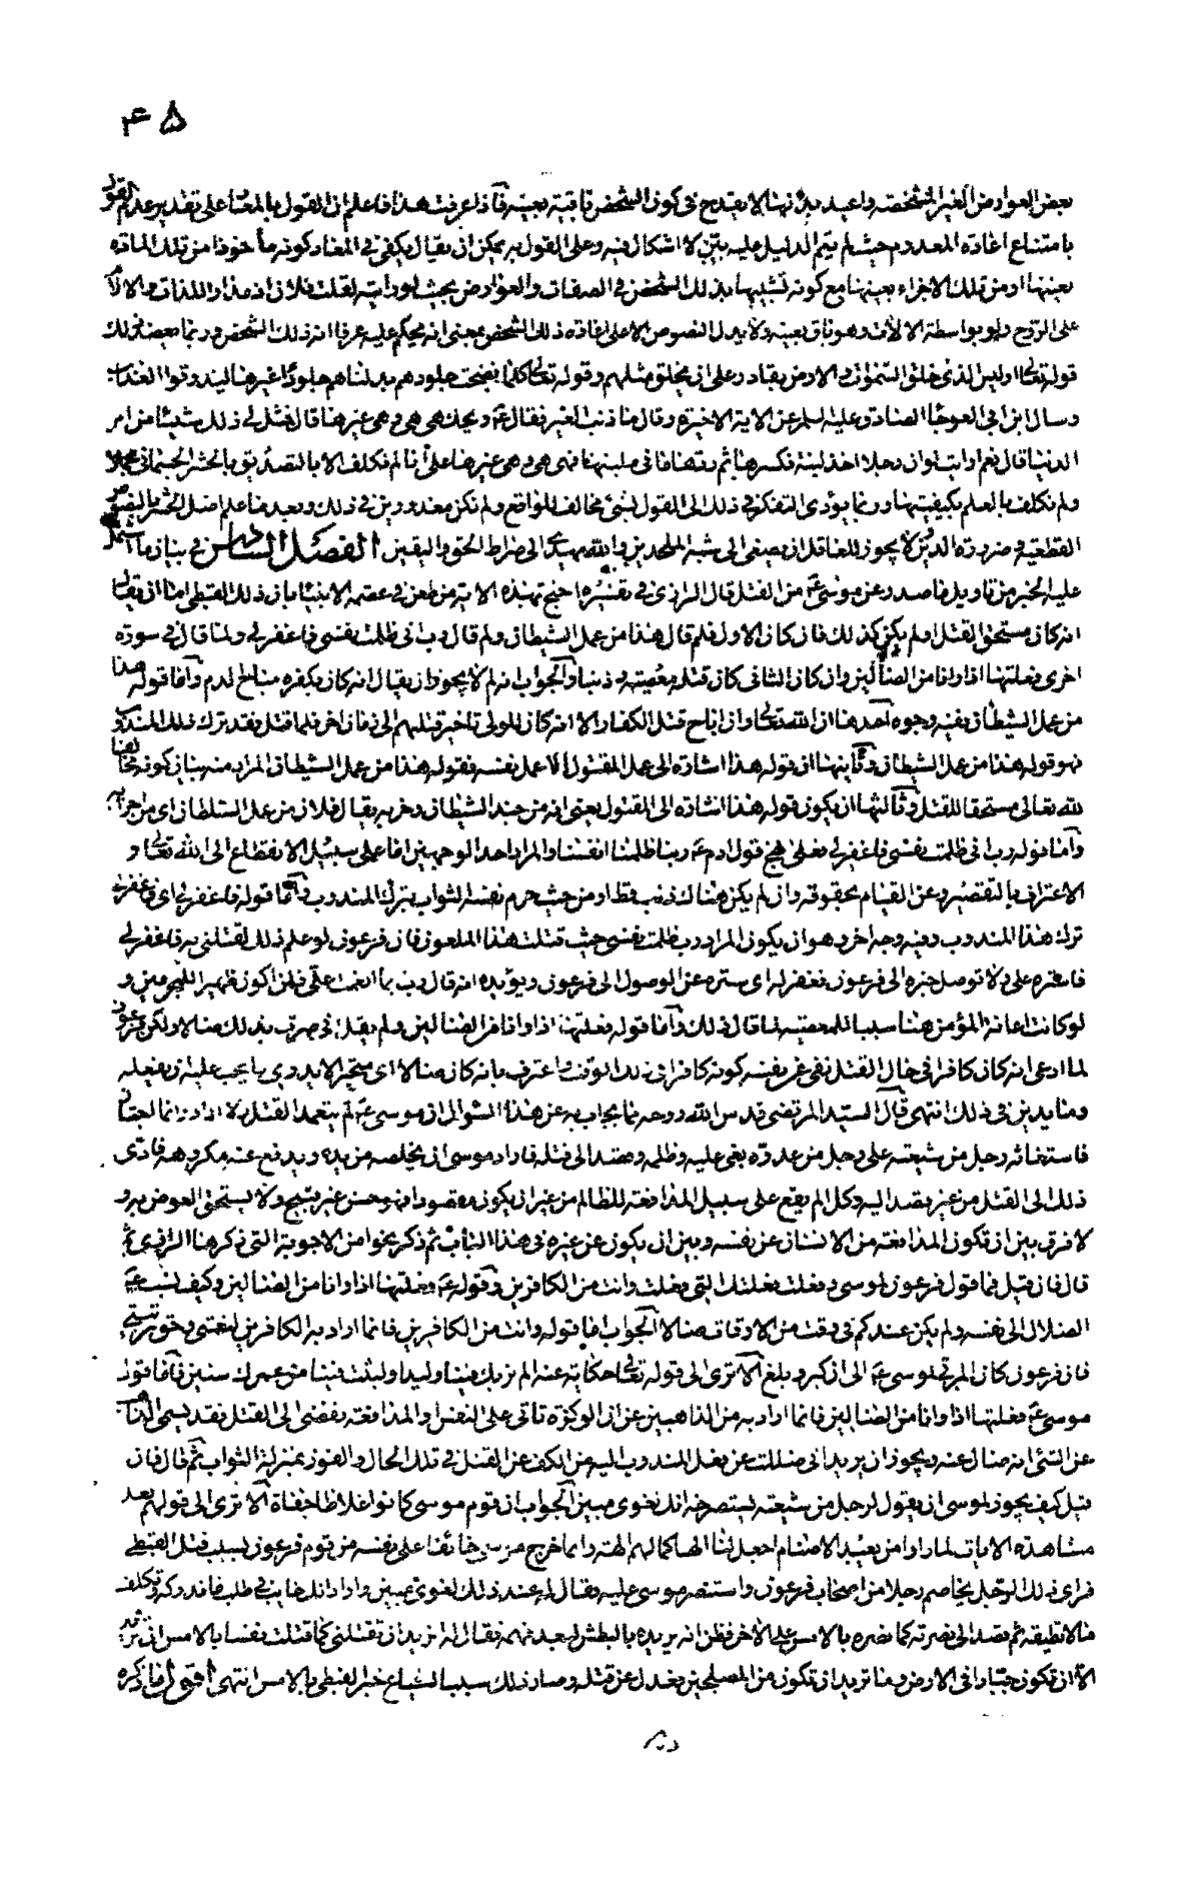 ٤٥
بعض العوارض الغير المشخصة واعيد بدلها لا يقدح في كون الشخص باقيا بعينه فاذا عرفت هذا فاعلم ان القول بالمعاد على تقدير عدم القول
بامتناع اعادة المعدوم حيث لم يتم الدليل عليه بين لا اشكال فيه وعلى القول به يمكن ان يقال يكفي في المعاد كونه مأخوذا من تلك المادة
بعينها او من تلك الاجزاء بعينها مع كونه شبيها بذلك الشخص في الصفات والعوارض بحيث لو رايته لقلت فلان اذ مدار اللذات والالام
على الروح ولو بواسطة الالات وهو باق بعينه ولا يدل النصوص الا على اعادة ذلك الشخص بمعنى انه يحكم عليه عرفا انه ذلك الشخص وربما يعضد ذلك
قوله تعالى اوليس الذي خلق السموات والارض بقادر على ان يخلق مثلهم وقوله تعالى كلما نضجت جلودهم بدلناهم جلودا غيرها ليذوقوا العذاب
وسال ابن ابي العوجاء الصادق عليه السلم عن الاية الاخيرة وقال ما ذنب الغير فقال ع ويحك هي هي وهي غيرها قال فمثل لي ذلك شيئا من امر
الدنيا قال نعم ارايت لو ان رجلا اخذ لبنة فكسرها ثم ردها في ملبنها فهي هي وهي غيرها على انا لم نكلف الا بالتصديق بالحشر الجسماني مجملا
ولم نكلف بالعلم بكيفيتها وربما يؤدي التفكر في ذلك الى القول بشيء مخالف للواقع ولم نكن معذورين في ذلك وبعد ما علم اصل الحشر بالنصوص
القطعية وضرورة الدين لا يجوز للعاقل ان يصغى الى شبه الملحدين والله يهدي الى صراط الحق واليقين الفصل السادس في بيان ما اشتمل
عليه الخبر من تاويل ما صدر عن موسى ع من القتل قال الرازي في تفسيره احتج بهذه الاية من طعن في عصمة الانبياء بان ذلك القبطي اما ان يقال
انه كان مستحق القتل او لم يكن كذلك فان كان الاول فلم قال هذا من عمل الشيطان ولم قال رب اني ظلمت نفسي فاغفر لي ولما قال في سورة
اخرى فعلتها اذا وانا من الضالين وان كان الثاني كان قتله معصية وذنبا والجواب انه لم لا يجوز ان يقال انه كان بكفره مباح الدم واما قوله هذا
من عمل الشيطان ففيه وجوه احدها ان الله تعالى وان اباح قتل الكفار الا انه كان الاولى تاخير قتلهم الى زمان اخر فلما قتل فقد ترك ذلك المندوب
فهو قوله هذا من عمل الشيطان وثانيها ان قوله هذا اشارة الى عمل المقتول لا عمل نفسه فقوله هذا من عمل الشيطان المراد منه بيان كونه مخالفا
لله تعالى مستحقا للقتل وثالثها ان يكون قوله هذا اشارة الى المقتول يعني انه من جند الشيطان وحزبه يقال فلان من عمل السلطان اي من اجزائه
واما قوله رب اني ظلمت نفسي فاغفر لي فعلى نهج قول ادم ع ربنا ظلمنا انفسنا والمراد احد الوجهين اما على سبيل الانقطاع الى الله تعالى و
الاعتراف بالتقصير عن القيام بحقوقه وان لم يكن هناك ذنب قط او من حيث حرم نفسه الثواب بترك المندوب واما قوله فاغفر لي اي فاغفر لي
ترك هذا المندوب وفيه وجه اخر وهو ان يكون المراد رب ظلمت نفسي حيث قتلت هذا الملعون فان فرعون لو علم ذلك لقتلني به فاغفر لي
فاستره علي ولا توصل خبره الى فرعون فغفر له اي ستره عن الوصول الى فرعون ويؤيده انه قال رب بما انعمت علي فلن اكون ظهيرا للمجرمين و
لو كانت اعانة المؤمن هنا سببا للمعصية لما قال ذلك واما قوله فعلتها اذا وانا من الضالين ولم يقل اني صرت بذلك ضالا ولكن فرعون
لما ادعى انه كان كافرا في حال القتل نفى عن نفسه كونه كافرا في ذلك الوقت واعترف بانه كان ضالا اي متحيرا لا يدري ما يجب عليه ان يفعله
وما يدين في ذلك انتهى قال السيد المرتضى قدس الله روحه مما يجاب به عن هذا السؤال ان موسى ع لم يتعمد القتل ولا اراده وانما اجتاز
فاستغاثه رجل من شيعته على رجل من عدوه بغى عليه وظلمه وقصد الى قتله فاراد موسى ان يخلصه من يده ويدفع عنه مكروهه فادى
ذلك الى القتل من غير قصد اليه وكل الم يقع على سبيل المدافعة للظالم من غير ان يكون مقصودا فهو حسن غير قبيح ولا يستحق العوض به و
لا فرق بين ان تكون المدافعة من الانسان عن نفسه وبين ان يكون عن غيره في هذا الباب ثم ذكر نحوا من الاجوبة التي ذكرها الرازي ثم
قال فان قيل فما قول فرعون لموسى وفعلت فعلتك التي فعلت وانت من الكافرين وقوله ع فعلتها اذا وانا من الضالين وكيف نسب ع
الضلال الى نفسه ولم يكن عندكم في وقت من الاوقات ضالا الجواب اما قوله وانت من الكافرين فانما اراد به الكافرين لنعمتي وحق تربيتي
فان فرعون كان المربي لموسى ع الى ان كبر وبلغ الا ترى الى قوله تعالى حكاية عنه الم نربك فينا وليدا ولبثت فينا من عمرك سنين واما قول
موسى ع فعلتها اذا وانا من الضالين فانما اراد به من الذاهبين عن ان الوكزة تاتي على النفس او المدافعة تفضي الى القتل فقد يسمى الذاهب
عن الشئ انه ضال عنه ويجوز ان يريد اني ضللت عن فعل المندوب اليه من الكف عن القتل في تلك الحال والفوز بمنزلة الثواب ثم قال فان
قيل كيف يجوز لموسى ان يقول لرجل من شيعته يستصرخه انك لغوي مبين الجواب ان قوم موسى كانوا غلاظا جفاة الا ترى الى قولهم بعد
مشاهدة الايات لما راوا من يعبد الاصنام اجعل لنا الها كما لهم الهة وانما خرج موسى خائفا على نفسه من قوم فرعون بسبب قتل القبطي
فراى ذلك الرجل يخاصم رجلا من اصحاب فرعون واستنصر موسى عليه فقال له عند ذلك لغوي مبين واراد انك خايب في طلب ما لا تدركه وتكلف
ما لا تطيقه ثم قصد الى نصرته كما نصره بالامس على الاخر فظن انه يريده بالبطش لبعد فهمه فقال له اتريد ان تقتلني كما قتلت نفسا بالامس ان تريد
الا ان تكون جبارا في الارض وما تريد ان تكون من المصلحين فعدل عن قتله وصار ذلك سببا لشياع خبر القبطي بالامس انتهى اقول ما ذكره